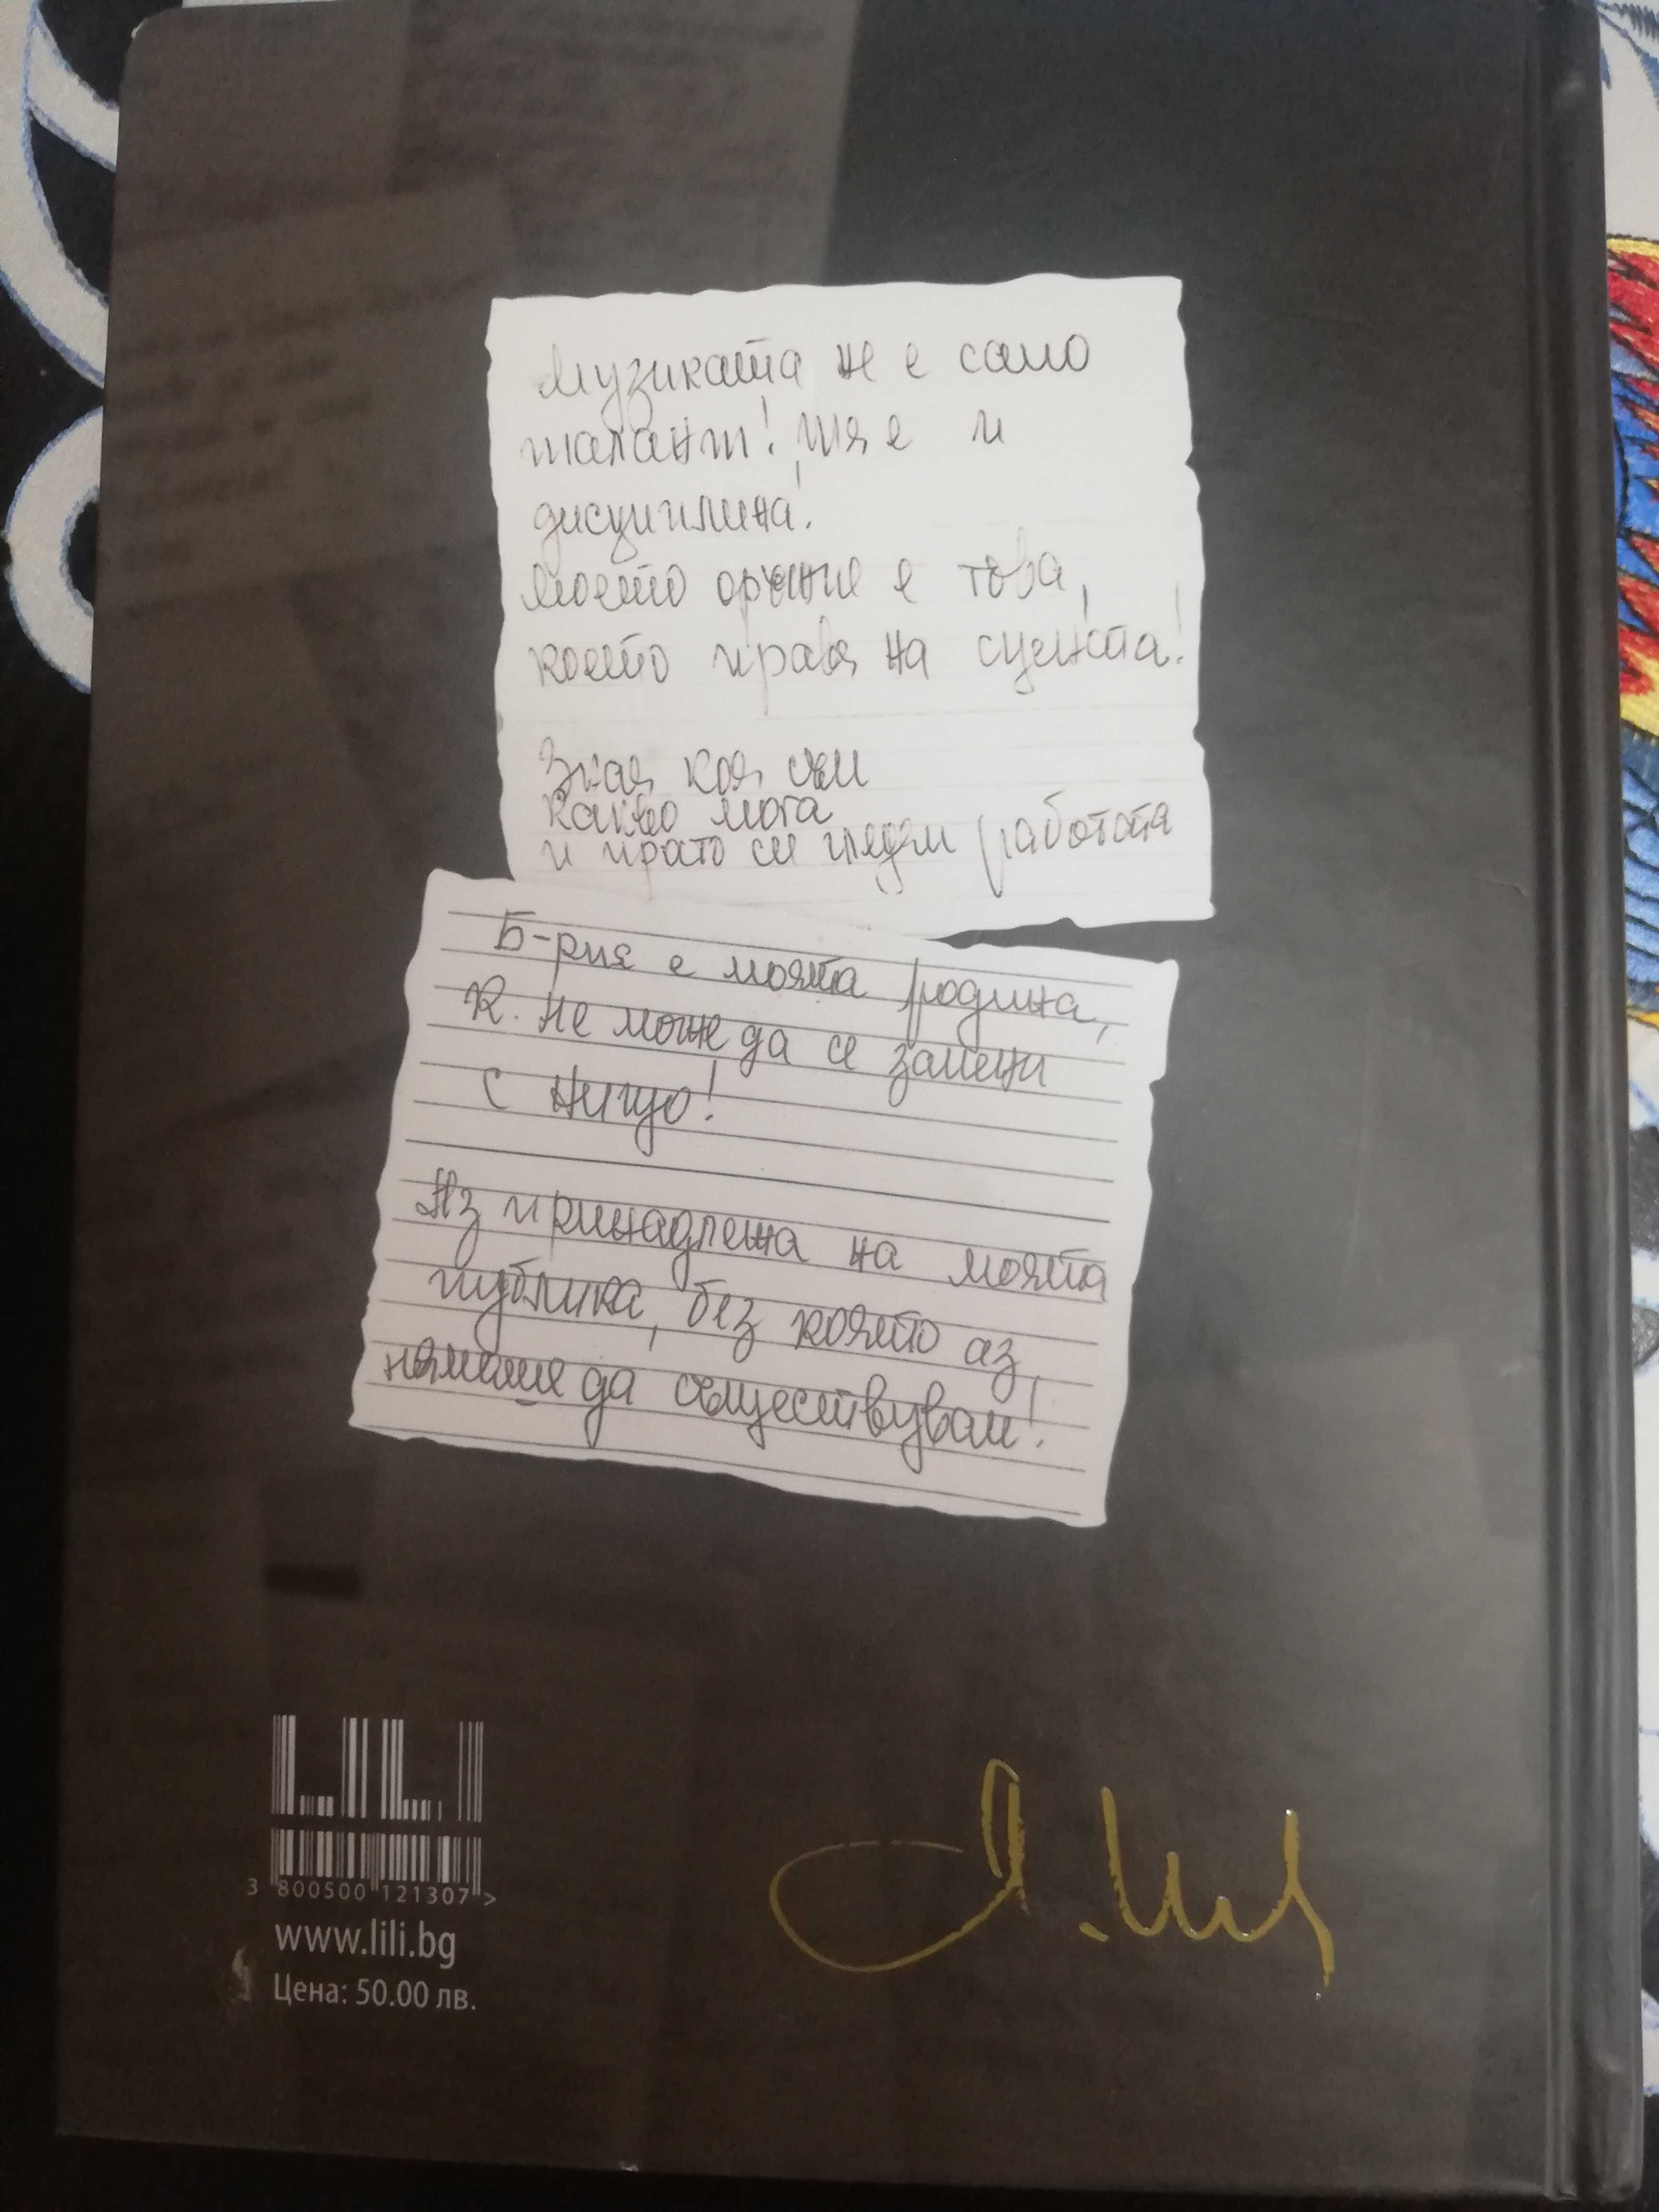 Музиката не е само
талант! Тя е и
дисциплина!
Моето оръжие е това,
което правя на сцената!
Зная коя съм
какво мога
и просто си гледам работата
Б-рия е моята родина,
К. не може да се замени
с нищо!
Аз принадлежа на моята
публика, без която аз
нямаше да съществувам!
LILI
3 800500 121307 >
www.lili.bg
Цена: 50.00 лв.